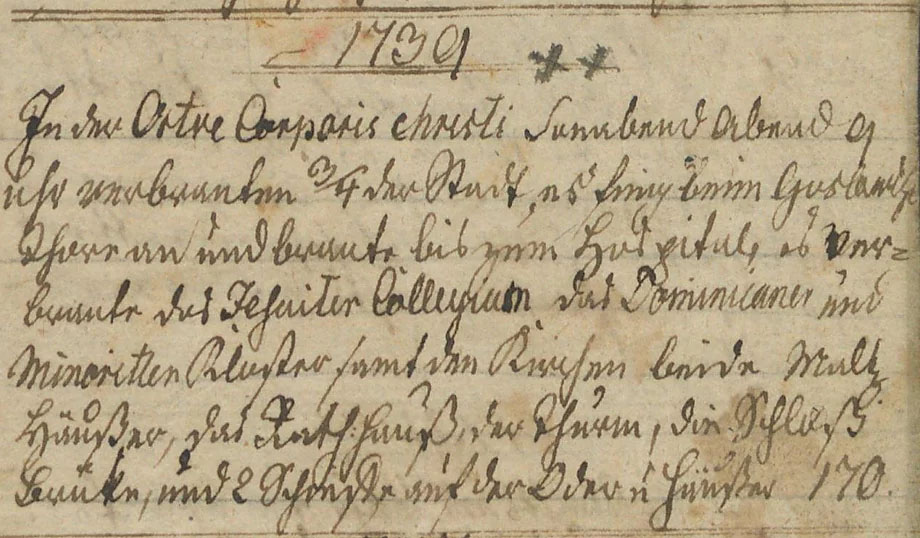 1739
In der Octve Corporis christi Sonabend abend 9
uhr verbranten 3/4 der Stadt, es fing beim
thore an und brante bis zum Hospital, es ver=
brante das Jesuiter Collegium das Dominicaner und
Minoritten Kloster samt den Kirchen beide Maltz
Häußer, das Rath:hauß, der thurm, die Schloß
Brüke, und 2 Schieffe auf der Oder u Häußer 170.